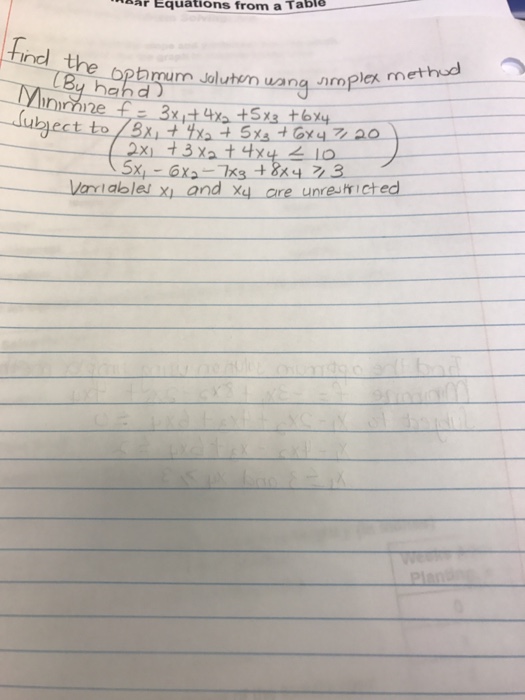 Equations from a Table
Find the optimum solution using simplex method
(By hand)
Minimize f = 3x₁ + 4x₂ + 5x₃ + 6x₄
Subject to ( 3x₁ + 4x₂ + 5x₃ + 6x₄ ≥ 20
2x₁ + 3x₂ + 4x₄ ≤ 10 )
5x₁ - 6x₂ - 7x₃ + 8x₄ ≥ 3
Variables x₁ and x₄ are unrestricted